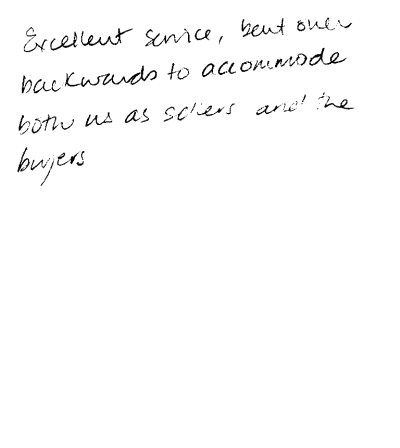 Excellent service, bent over
backwards to accommode
both us as sellers and the
buyers